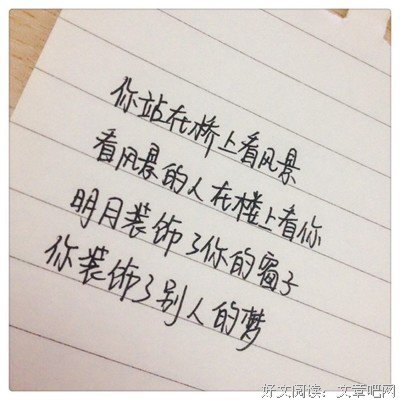 你站在桥上看风景
看风景的人在楼上看你
明月装饰了你的窗子
你装饰了别人的梦
好文阅读：文章吧网